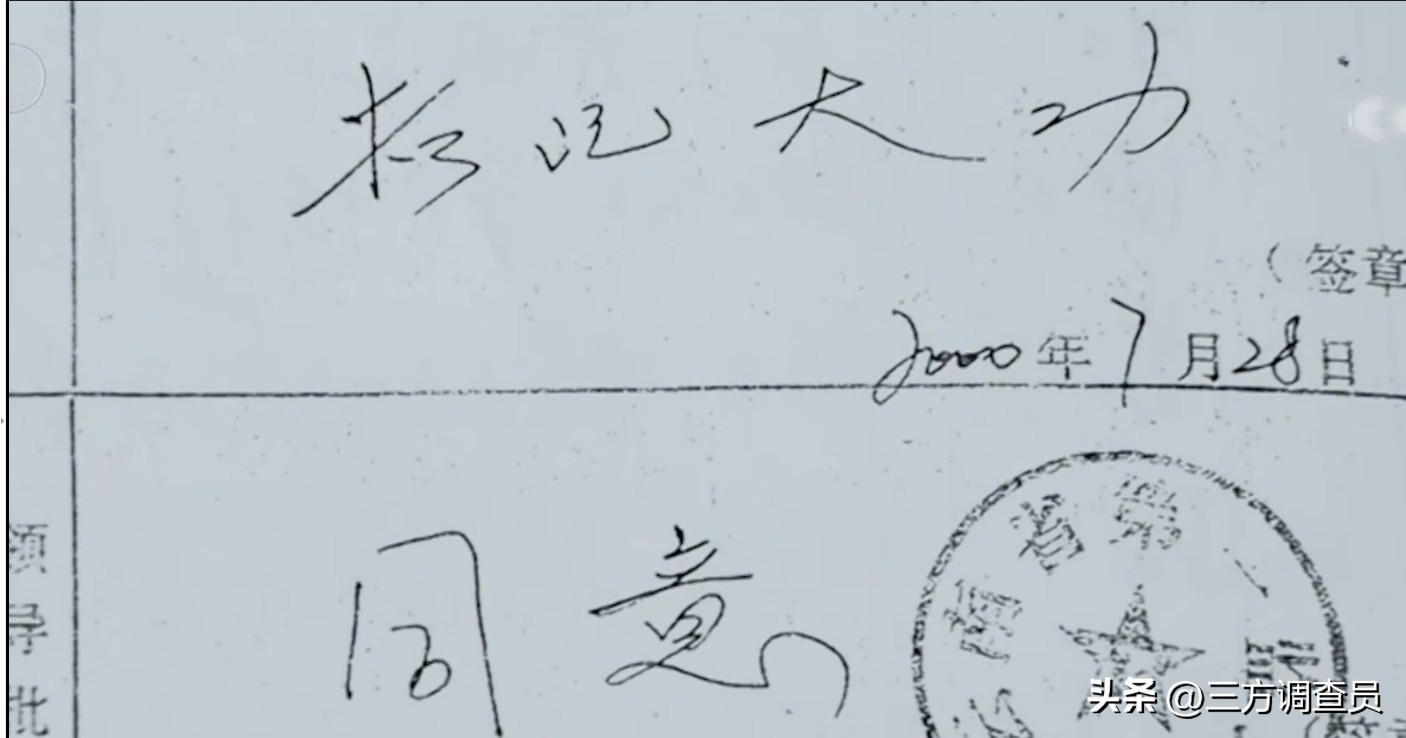 记大功
（签章
2000年7月28日
领导批
同意
云南省第一监
头条 @三方调查员